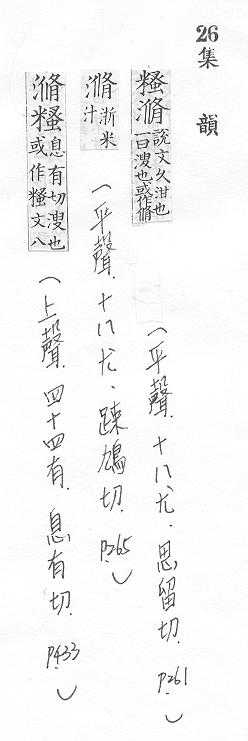 26
集韻
糔滫 說文久泔也一曰溲也或作滫
(平聲.十八尤.思留切.P.261)
滫 淅米汁
(平聲.十八尤.踈鳩切.P.265)
滫糔 息有切溲也或作糔文八
(上聲.四十四有.息有切.P.433)